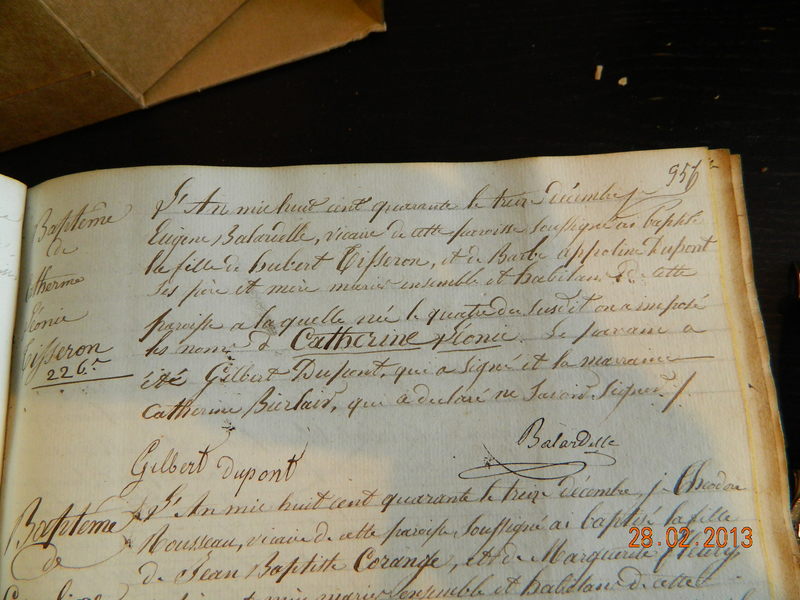 956
Baptême
de
Catherine
Léonie
Tisseron
226e
L'An mil huit cent quarante le treize décembre, je
Eugène Balardelle, vicaire de cette paroisse soussigné ai baptisé
la fille de hubert Tisseron, et de Barbe appoline Dupont
ses père et mère mariés ensemble et habitans de cette
paroisse a laquelle née le quatre du susdit on a imposé
les noms d Catherine Léonie. Le parrain a
été Gilbert Dupont, qui a signé et la marraine
Catherine, qui a déclaré ne savoir signer
Balardelle
Gilbert dupont
Baptême
de
L'An mil huit cent quarante le treize décembre, je Théodore
Rousseau, vicaire de cette paroisse, soussigné ai baptisé la fille
de Jean Baptiste Corange, et de Marguerite
mère mariés ensemble et habitans de cette
28.02.2013